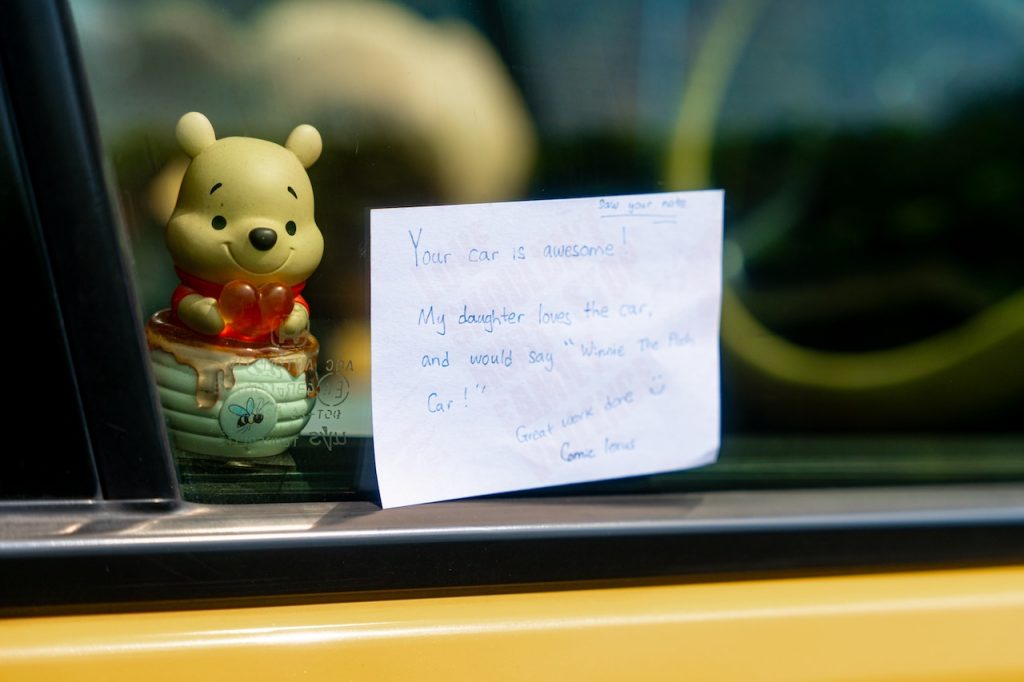 Saw your note
Your car is awesome!
My daughter loves the car,
and would say "Winnie The Pooh
Car!"
Great work done